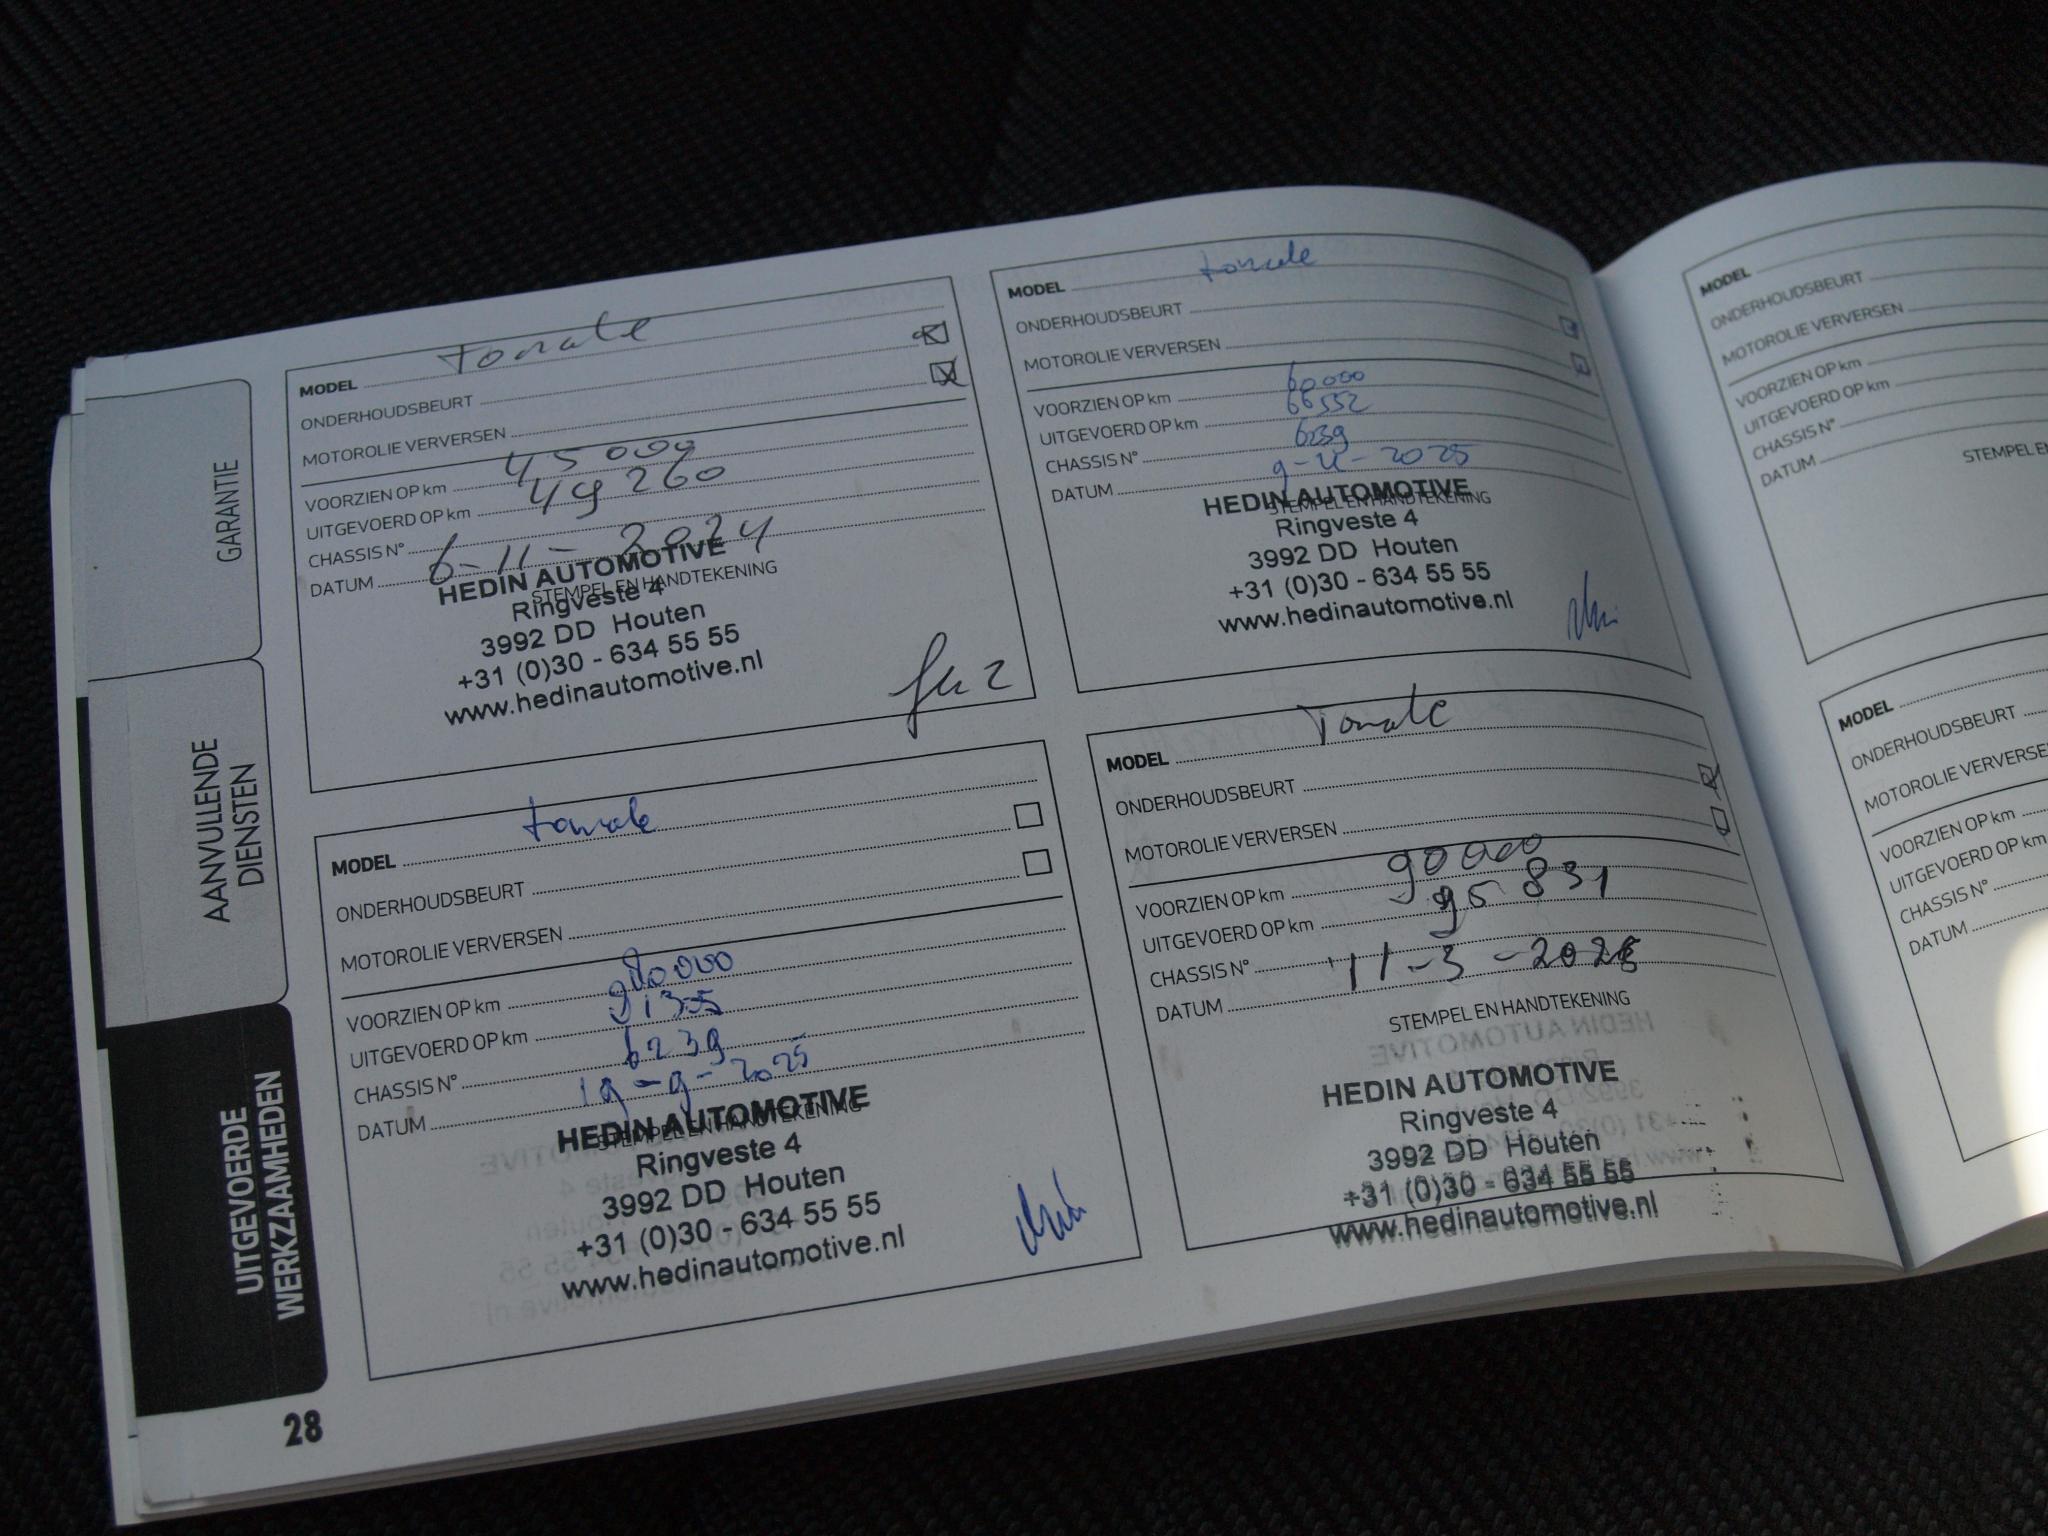 GARANTIE
AANVULLENDE
DIENSTEN
UITGEVOERDE
WERKZAAMHEDEN
28
MODEL Tonale
ONDERHOUDSBEURT
MOTOROLIE VERVERSEN
VOORZIEN OP km 45000
UITGEVOERD OP km 49260
CHASSIS N°
DATUM 6-11-2024
STEMPEL EN HANDTEKENING
HEDIN AUTOMOTIVE
Ringveste 4
3992 DD Houten
+31 (0)30 - 634 55 55
www.hedinautomotive.nl
MODEL tonale
ONDERHOUDSBEURT
MOTOROLIE VERVERSEN
VOORZIEN OP km 60000
UITGEVOERD OP km 66552
CHASSIS N° 6239
DATUM
STEMPEL EN HANDTEKENING
HEDIN AUTOMOTIVE
Ringveste 4
3992 DD Houten
+31 (0)30 - 634 55 55
www.hedinautomotive.nl
MODEL tonale
ONDERHOUDSBEURT
MOTOROLIE VERVERSEN
VOORZIEN OP km
UITGEVOERD OP km
CHASSIS N° 6239
DATUM 19-9-2025
STEMPEL EN HANDTEKENING
HEDIN AUTOMOTIVE
Ringveste 4
3992 DD Houten
+31 (0)30 - 634 55 55
www.hedinautomotive.nl
MODEL Tonale
ONDERHOUDSBEURT
MOTOROLIE VERVERSEN
VOORZIEN OP km 90000
UITGEVOERD OP km 95831
CHASSIS N°
DATUM
STEMPEL EN HANDTEKENING
HEDIN AUTOMOTIVE
Ringveste 4
3992 DD Houten
+31 (0)30 - 634 55 55
www.hedinautomotive.nl
MODEL
ONDERHOUDSBEURT
MOTOROLIE VERVERSEN
VOORZIEN OP km
UITGEVOERD OP km
CHASSIS N°
DATUM
STEMPEL
MODEL
ONDERHOUDSBEURT
MOTOROLIE
VOORZIEN OP km
UITGEVOERD OP km
CHASSIS N°
DATUM